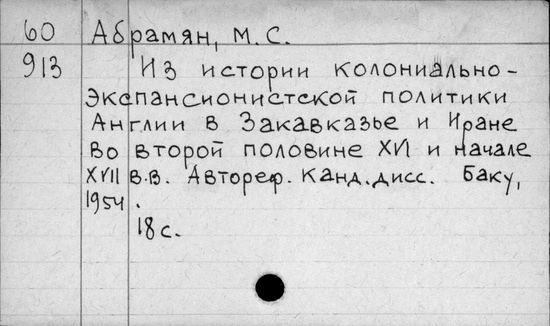 60 Абрамян, М.С.
913 Из истории колониально-
экспансионистской политики
Англии в Закавказье и Иране
во второй половине XVI и начале
XVII в.в. Автореф. Канд.дисс. Баку,
1954.
18с.